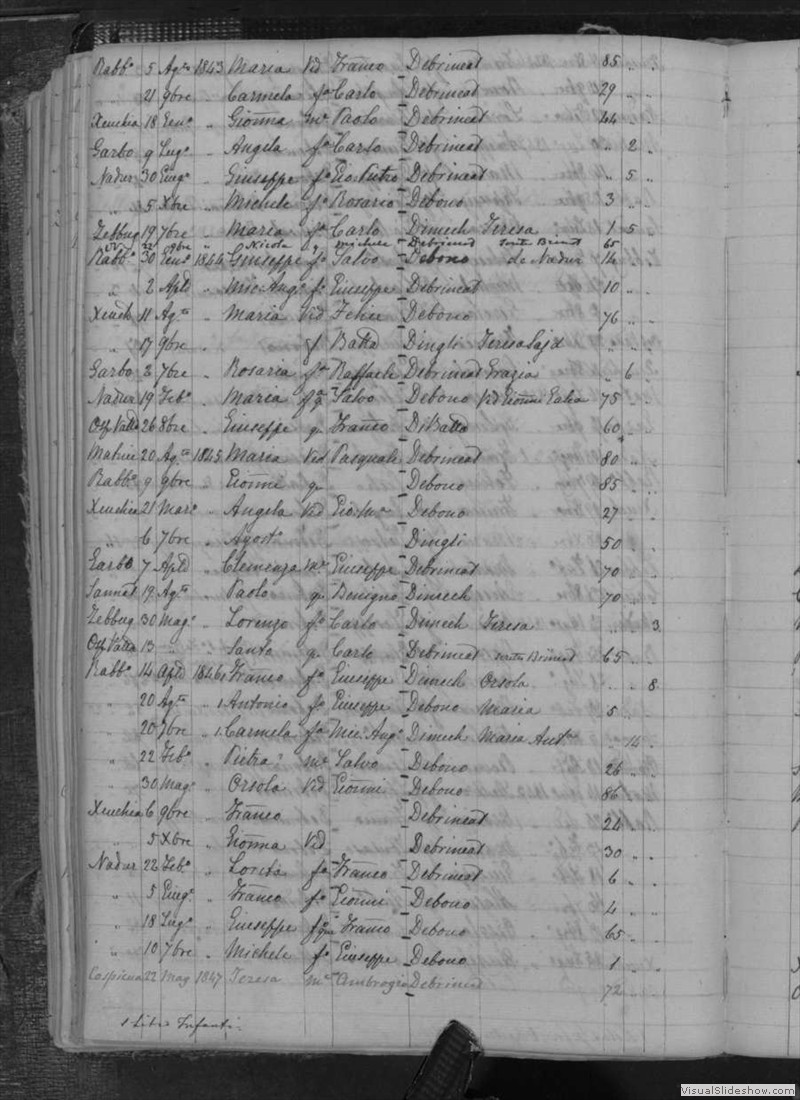 Rabb.o 5 Ag.to 1843 Maria Vid Franco Debrincat 85 " "
" 21 9bre " Carmela f.a Carlo Debrincat 29 " "
Xeuchia 18 Gen.o " Gionna M.e Paolo Debrincat 44 " "
Garbo 9 Lug.o " Angela f.a Carlo Debrincat " 2 "
Nadur 30 Giug.o " Giuseppe f.o Gio. Pietro Debrincat " 5 "
" 5 Xbre " Michele f.o Rosario Debono 3 " "
Zebbug 19 7bre " Maria f.a Carlo Dimech Teresa 1 5 "
22 9bre " Nicola q. Michele Debrincat 65
Rabb.o 30 Gen.o 1844 Giuseppe f.o Salvo Debono de Nadur 14 " "
" 2 Aple " Mic. Ang.o f.o Giuseppe Debrincat 10 " "
Xeuch 11 Ag.to " Maria Vid Felice Debono 76 " "
" 17 9bre " f Batta Dingli Teresa " " "
Garbo 2 7bre " Rosaria f.a Raffaele Debrincat Grazia " 6 "
Nadur 19 Feb.o " Maria Salvo Debono Vid Gionni 75 " "
26 8bre " Giuseppe q. Franco DiBatta 60 " "
20 Ag.to 1845 Maria Vid Pasquale Debrincat 80 " "
Rabb.o 9 9bre " Gionni q. Debono 85 " "
Xeuchia 21 Mar.o " Angela Vid Gio. M.a Debono 27 " "
" 6 7bre " Agost.o Dingli 50 " "
Garbo 7 Aple " Clemenza M.e Giuseppe Debrincat 70 " "
Sannat 19 Ag.to " Paolo q. Benigno Dimech 70 " "
Zebbug 30 Mag.o " Lorenzo f.o Carlo Dimech Teresa " " 3
13 " " Santo q. Carlo Debrincat 65 " "
Rabb.o 14 Aple 1846 Franco f.o Giuseppe Dimech Orsola " " 8
" 20 Ag.to 1 Antonio f.o Giuseppe Debono Maria 5 " "
" 20 7bre 1 Carmela f.a Mic. Ang.o Dimech Maria Ant.a " 14 "
" 22 Feb.o " Pietra M.e Salvo Debono 26 " "
" 30 Mag.o " Orsola Vid Gionni Debono 86 " "
Xeuchia 6 9bre " Franco Debrincat 24 " "
" 5 Xbre " Gionna Vid Debrincat 30 " "
Nadur 22 Feb.o " f.a Franco Debrincat 6 " "
" 5 Giug.o " Franco f.o Gionni Debono 4 " "
" 18 Lug.o " Giuseppe Franco Debono 65 " "
" 10 7bre " Michele f.o Giuseppe Debono 1 " "
22 Mag 1847 Teresa M.e Ambrogio Debrincat 72 " "
1 Libro Infanti
VisualSlideshow.com